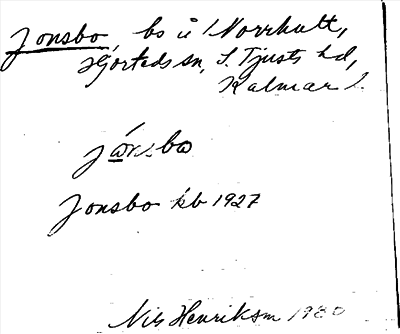 Jonsbo, bs u Norrhult,
Hjorteds sn, S. Tjusts hd,
Kalmar l.
Jonsbo kb 1927
Nils Henriksson 1980